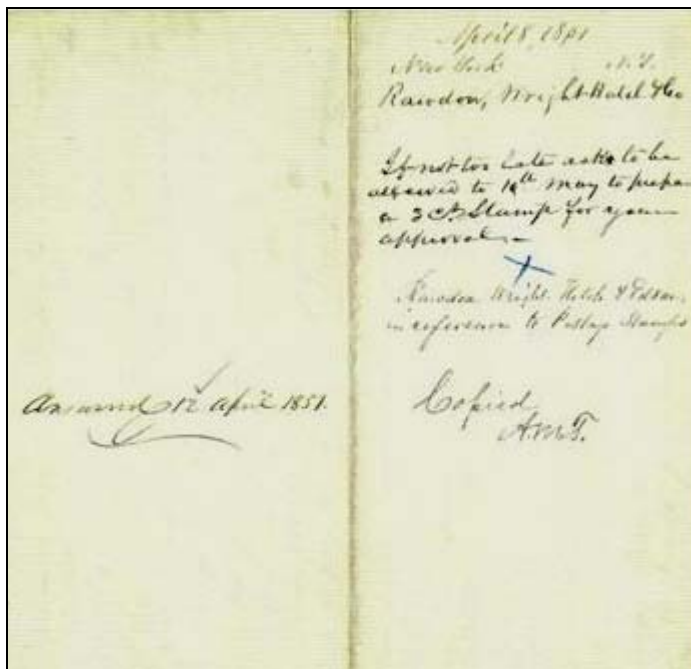 April 8, 1851
New York N.Y.
Rawdon, Wright Hatch & Co
If not too late asks to be
allowed to 10th May to prepare
a 3 ct Stamp for your
approval.
Rawdon Wright. Hatch & Edson,
in reference to Postage Stamps
Answered 12 April 1851.
Copied
A.M.T.